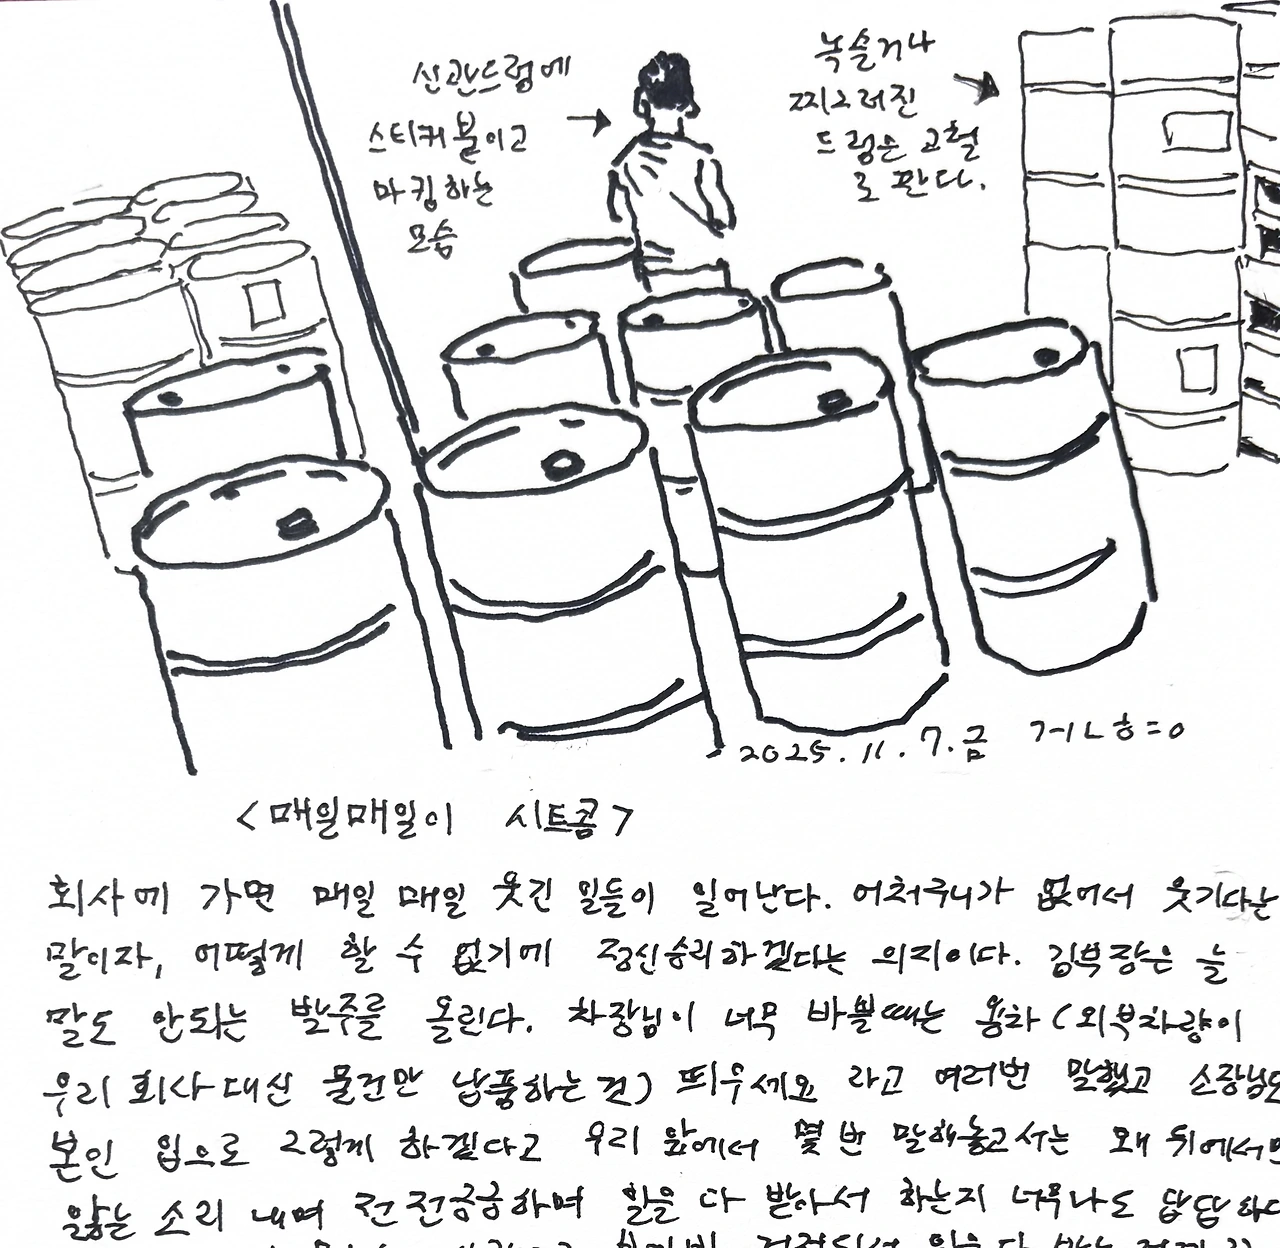 신관드럼에
스티커 붙이고
마킹하는
모습
녹슬거나
찌그러진
드럼은 고철
로 판다.
2025. 11. 7. 금
<매일매일이 시트콤>
회사에 가면 매일 매일 웃긴 일들이 일어난다. 어처구니가 없어서 웃기다는
말이자, 어떻게 할 수 없기에 정신승리하겠다는 의지이다. 김부장은 늘
말도 안되는 발주를 올린다. 차장님이 너무 바쁠때는 용차 (외부차량이
우리 회사 대신 물건만 납품하는 것) 띄우세요 라고 여러번 말했고 소장님도
본인 입으로 그렇게 하겠다고 우리 앞에서 몇 번 말해놓고서는 왜 뒤에서만
앓는 소리 내며 전전긍긍하며 일을 다 받아서 하는지 너무나도 답답하다